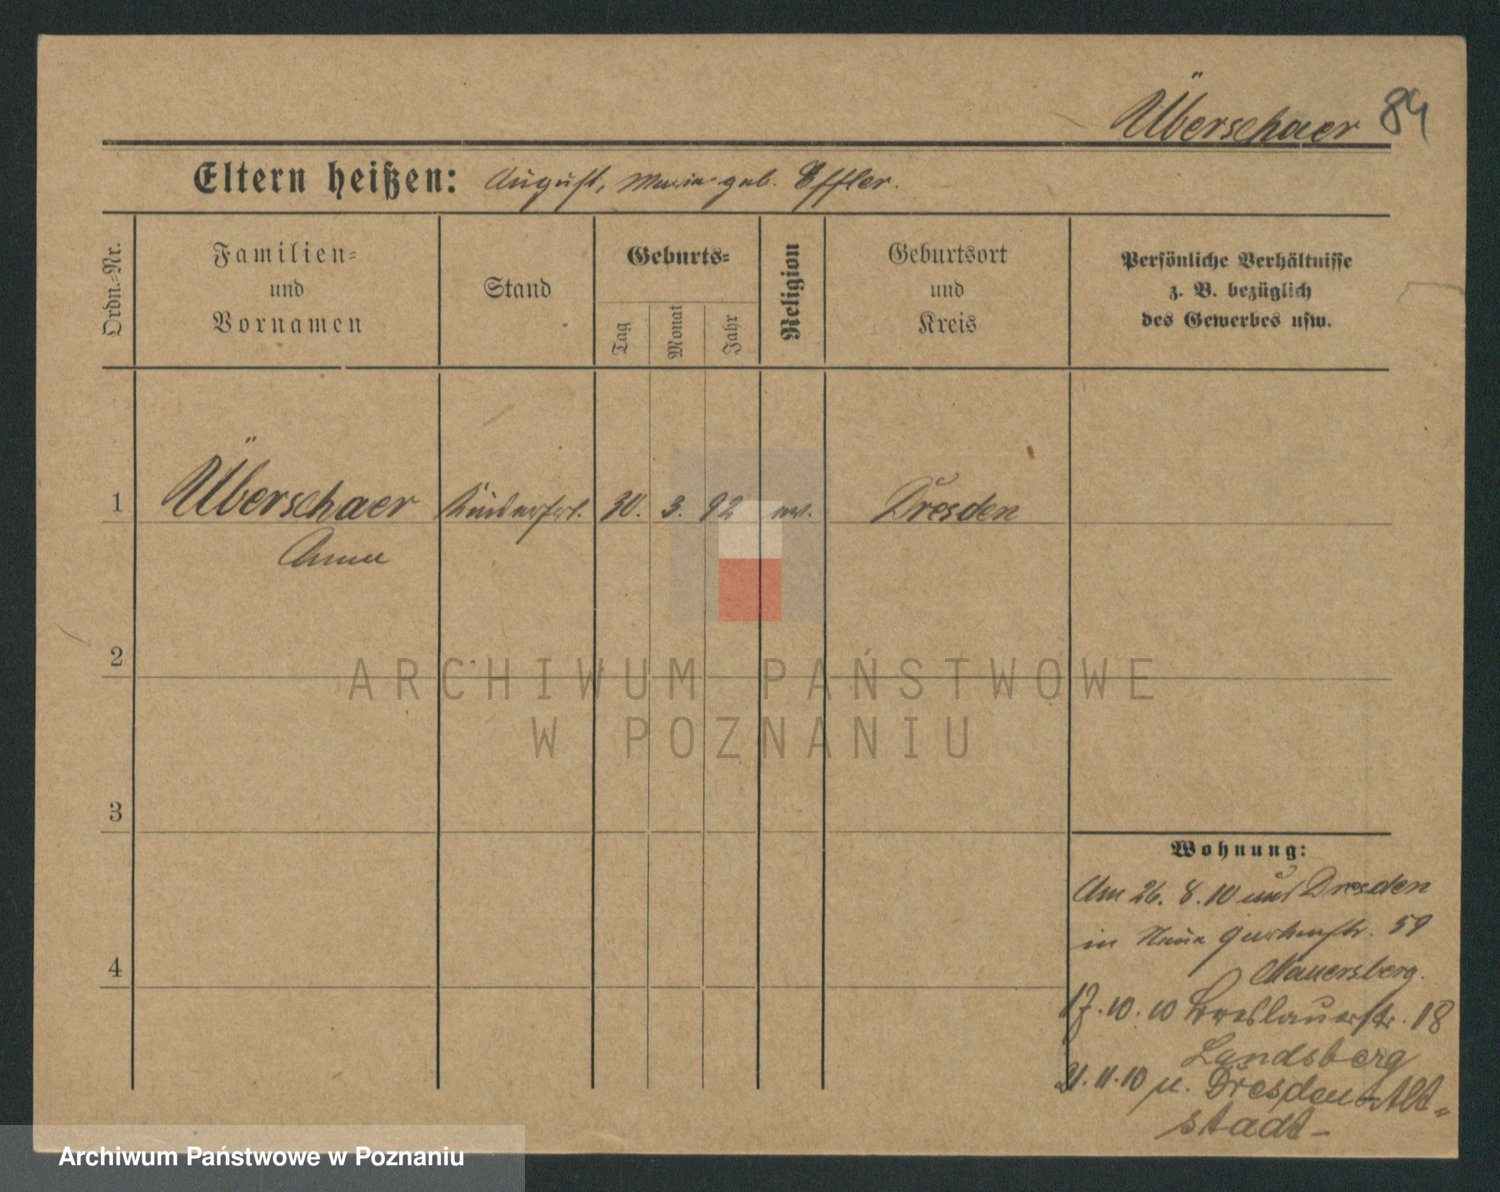 Überschaer 84
Eltern heißen: August, Maria geb. Effler.
Ordn.-Nr.
Familien-
und
Vornamen
Stand
Geburts-
Tag
Monat
Jahr
Religion
Geburtsort
und
Kreis
Persönliche Verhältnisse
z. B. bezüglich
des Gewerbes usw.
1 Überschaer Kinderfrl. 30. 3. 92 ev. Dresden
Anna
2
3
4
Wohnung:
Am 26. 8. 10 aus Dresden
in Neue Gartenstr. 59
Mauersberg.
17. 10. 10 Breslauerstr. 18
Landsberg
21. 11. 10 n. Dresden-Alt-
stadt-
ARCHIWUM PAŃSTWOWE
W POZNANIU
Archiwum Państwowe w Poznaniu